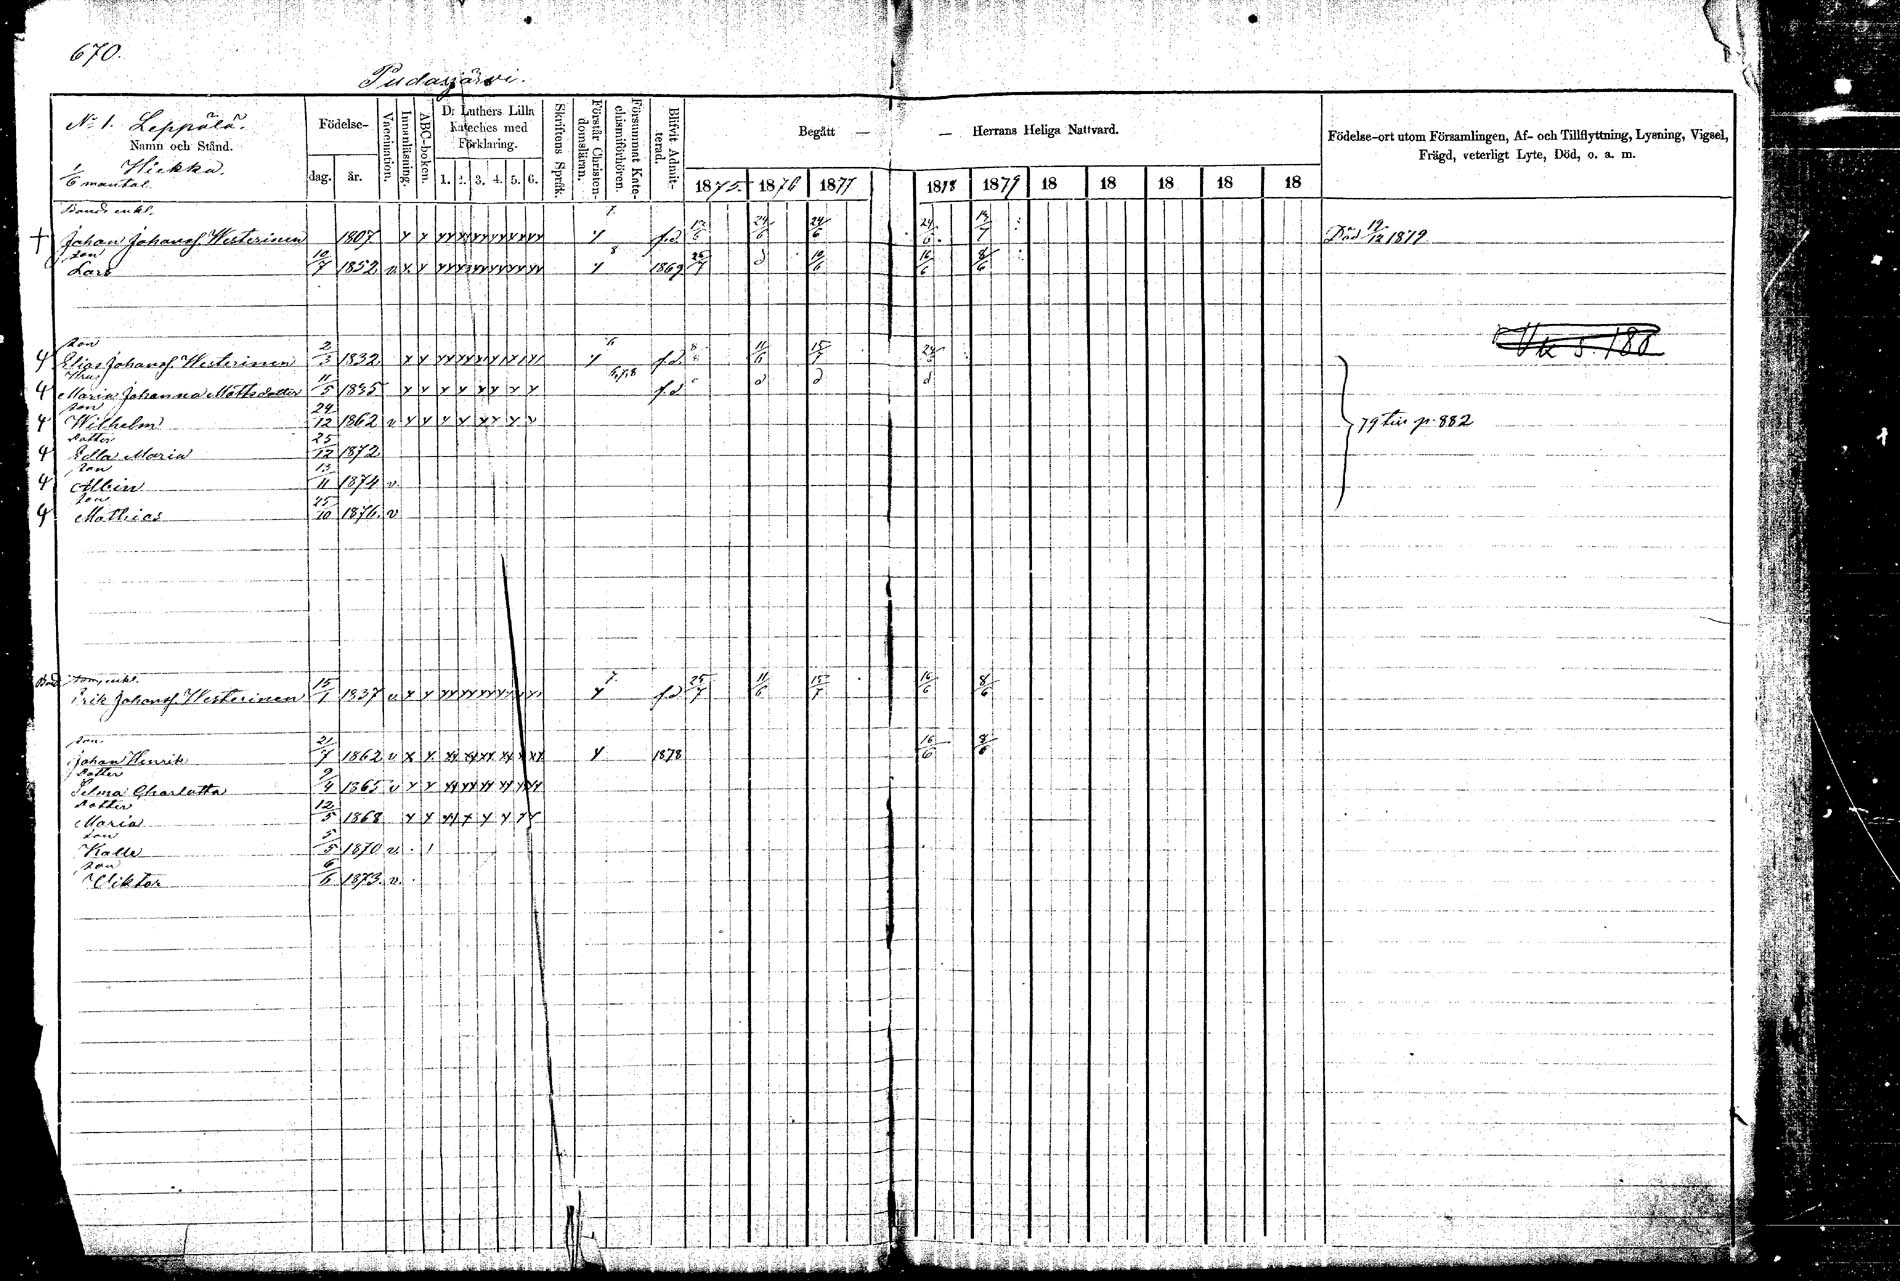 670.
Pudasjärvi.
No 1. Leppälä.
Namn och Stånd.
Hiekka.
1/6 mantal.
Födelse-
dag. år.
Vaccination.
Innanläsning.
ABC-boken.
Dr Luthers Lilla Kateches med Förklaring.
1. 2. 3. 4. 5. 6.
Skriftens Språk.
Förstår Christendomsläran.
Försummat Katechismiförhören.
Blifvit Admitterad.
Begått — — Herrans Heliga Nattvard.
1875 1876 1877 1878 1879 18 18 18 18 18
Födelse-ort utom Församlingen, Af- och Tillflyttning, Lysning, Vigsel,
Frägd, veterligt Lyte, Död, o. a. m.
Bonde enkl. 7.
† Johan Johansf. Westerinen 1807 f.d. 24/6 24/6 Död 19/12 1879
son 8
Lars 10/7 1852 v 1869 25/7 d 10/6 16/6 8/6
Vk s. 188
son 6
Elias Johansf. Westerinen 2/3 1832 f.d. 11/6 15/7
Hru 6,7,8
Maria Johanna Mattsdotter 11/5 1835 f.d. d d d
son
Wilhelm 24/12 1862 v 79 tin p. 882
Dotter
Edla Maria 25/12 1872
son
Albin 13/11 1874 v.
son
Mathias 25/10 1876. v
Bond. son, enkl. 7.
Erik Johansf. Westerinen 15/1 1837 v f.d 25/7 11/6 15/7 16/6 8/6
son
Johan Henrik 21/7 1862 v 1878 16/6 8/6
Dotter
Selma Charlotta 9/4 1865 v
Dotter
Maria 12/5 1868
son
Kalle 5/5 1870 v.
son
Viktor 6/6 1873. v.